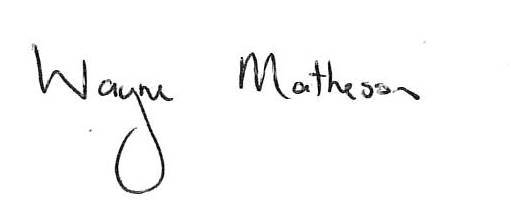 Wayne Matheson